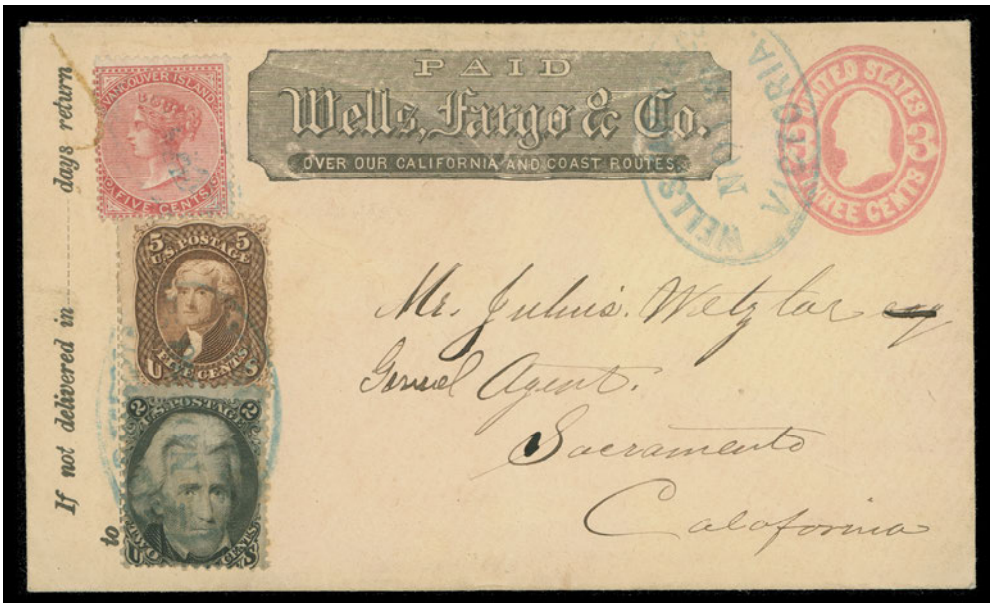 If not delivered in
days return
to
VANCOUVER ISLAND
FIVE CENTS
5 5
U.S. POSTAGE
FIVE CENTS
U S
2 2
U.S. POSTAGE
TWO CENTS
U S
PAID
Wells, Fargo & Co.
OVER OUR CALIFORNIA AND COAST ROUTES.
WELLS
VICTORIA.
UNITED STATES
3 3
THREE CENTS
Mr. Julius. Wetzlar
Agent.
Sacramento
California